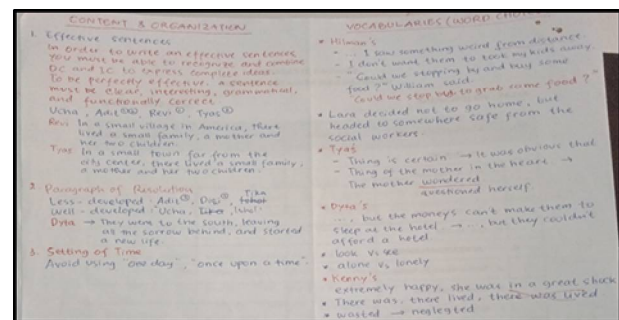 CONTENT & ORGANIZATION
1. Effective sentences
In order to write an effective sentences
you must be able to recognize and combine
DC and IC to express complete ideas.
To be perfectly effective, a sentence
must be clear, interesting, grammatical,
and functionally correct
Ucha, Adit, Revi, Tyas
Revi In a small village in America, there
lived a small family, a mother and
her two children.
Tyas In a small town far from the
city center, there lived a small family,
a mother and her two children.
2. Paragraph of Resolution
Less-developed: Adit, Disi,
Well-developed: Ucha,
Dyta → They went to the south, leaving
all the sorrow behind, and started
a new life.
3. Setting of Time
Avoid using "one day", "once upon a time".
VOCABULARIES (WORD CHOICE
• Hilman's
- ... I saw something weird from distance.
- I don't want them to took my kids away.
- "Could we stopping by and buy some
food?" William said.
"Could we stop to grab came food?"
• Lara decided not to go home, but
headed to somewhere safe from the
social workers.
• Tyas'
- Thing is certain → It was obvious that
- Thing of the mother in the heart →
The mother wondered
questioned herself.
• Dyta's
..., but the moneys can't make them to
sleep at the hotel → ..., but they couldn't
afford a hotel.
• look vs see
• alone vs lonely
• Keeny's
extremely happy, she was in a great shock
• There was, there lived, there was lived
• wasted → neglected